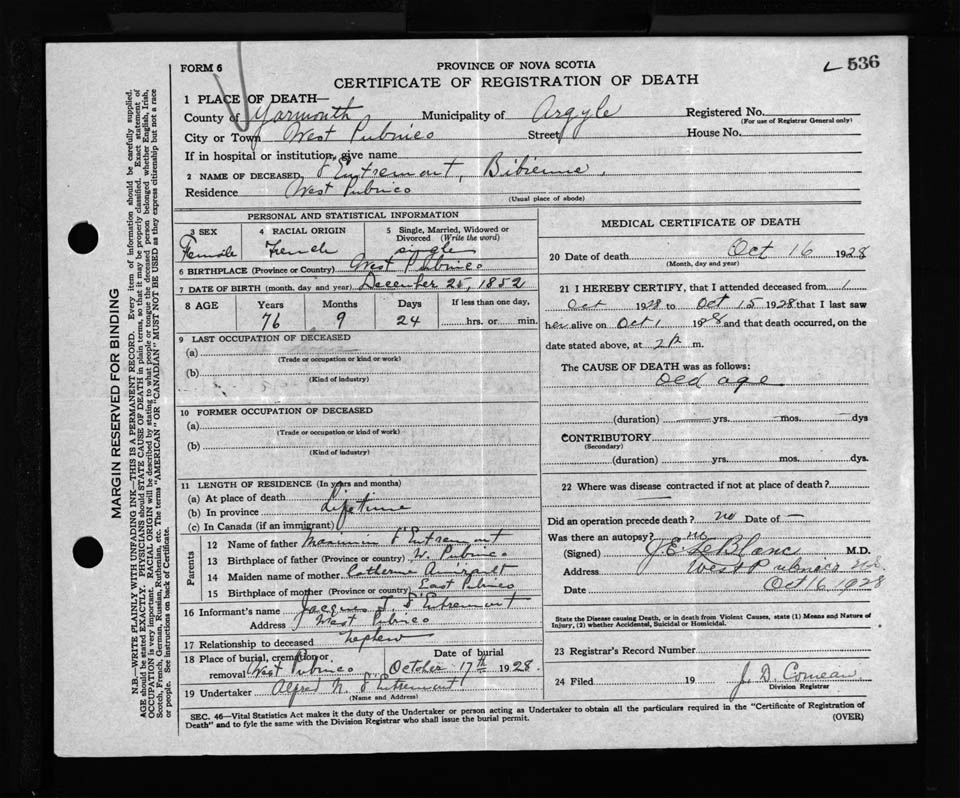 FORM 6
PROVINCE OF NOVA SCOTIA
CERTIFICATE OF REGISTRATION OF DEATH
L 536
1 PLACE OF DEATH—
County of Yarmouth Municipality of Argyle Registered No.
(For use of Registrar General only)
City or Town West Pubnico Street House No.
If in hospital or institution, give name
2 NAME OF DECEASED d'Entremont, Bibienne.
Residence West Pubnico
(Usual place of abode)
PERSONAL AND STATISTICAL INFORMATION
3 SEX 4 RACIAL ORIGIN 5 Single, Married, Widowed or Divorced (Write the word)
Female French single
6 BIRTHPLACE (Province or Country) West Pubnico
7 DATE OF BIRTH (month, day and year) December 25, 1852
8 AGE Years Months Days If less than one day,
76 9 24 hrs. or min.
9 LAST OCCUPATION OF DECEASED
(a)
(Trade or occupation or kind or work)
(b)
(Kind of industry)
10 FORMER OCCUPATION OF DECEASED
(a)
(Trade or occupation or kind or work)
(b)
(Kind of industry)
11 LENGTH OF RESIDENCE (In years and months)
(a) At place of death
(b) In province Lifetime
(c) In Canada (if an immigrant)
Parents
12 Name of father d'Entremont
13 Birthplace of father (Province or country) W. Pubnico
14 Maiden name of mother Catherine Amirault
15 Birthplace of mother (Province or country) East Pubnico
16 Informant's name Jacques d'Entremont
Address West Pubnico
17 Relationship to deceased nephew
18 Place of burial, cremation or removal West Pubnico Date of burial October 17th 1928.
19 Undertaker Alfred N. d'Entremont
(Name and Address)
MEDICAL CERTIFICATE OF DEATH
20 Date of death Oct 16 1928
(Month, day and year)
21 I HEREBY CERTIFY, that I attended deceased from 1
Oct 1928 to Oct 15 1928 that I last saw
her alive on Oct 1 1928 and that death occurred, on the
date stated above, at 2 P m.
The CAUSE OF DEATH was as follows:
old age
(duration) yrs. mos. dys
CONTRIBUTORY
(Secondary)
(duration) yrs. mos. dys.
22 Where was disease contracted if not at place of death?
Did an operation precede death? no Date of —
Was there an autopsy? no
(Signed) J. E. LeBlanc M.D.
Address West Pubnico N.S.
Date Oct 16 1928
State the Disease causing Death, or in death from Violent Causes, state (1) Means and Nature of
Injury, (2) whether Accidental, Suicidal or Homicidal.
23 Registrar's Record Number
24 Filed 19 J. D. Comeau
Division Registrar
SEC. 46—Vital Statistics Act makes it the duty of the Undertaker or person acting as Undertaker to obtain all the particulars required in the "Certificate of Registration of
Death" and to fyle the same with the Division Registrar who shall issue the burial permit.
(OVER)
MARGIN RESERVED FOR BINDING
N.B.—WRITE PLAINLY WITH UNFADING INK—THIS IS A PERMANENT RECORD. Every item of information should be carefully supplied.
AGE should be stated EXACTLY. PHYSICIANS should STATE CAUSE OF DEATH in plain terms, so that it may be properly classified. Exact statement of
OCCUPATION is very important. RACIAL ORIGIN will be described by stating to what people or tongue the deceased person belonged whether English, Irish,
Scotch, French, German, Russian, Ruthenian, etc. The terms "AMERICAN" OR "CANADIAN" MUST NOT BE USED as they express citizenship but not a race
or people. See instructions on back of Certificate.